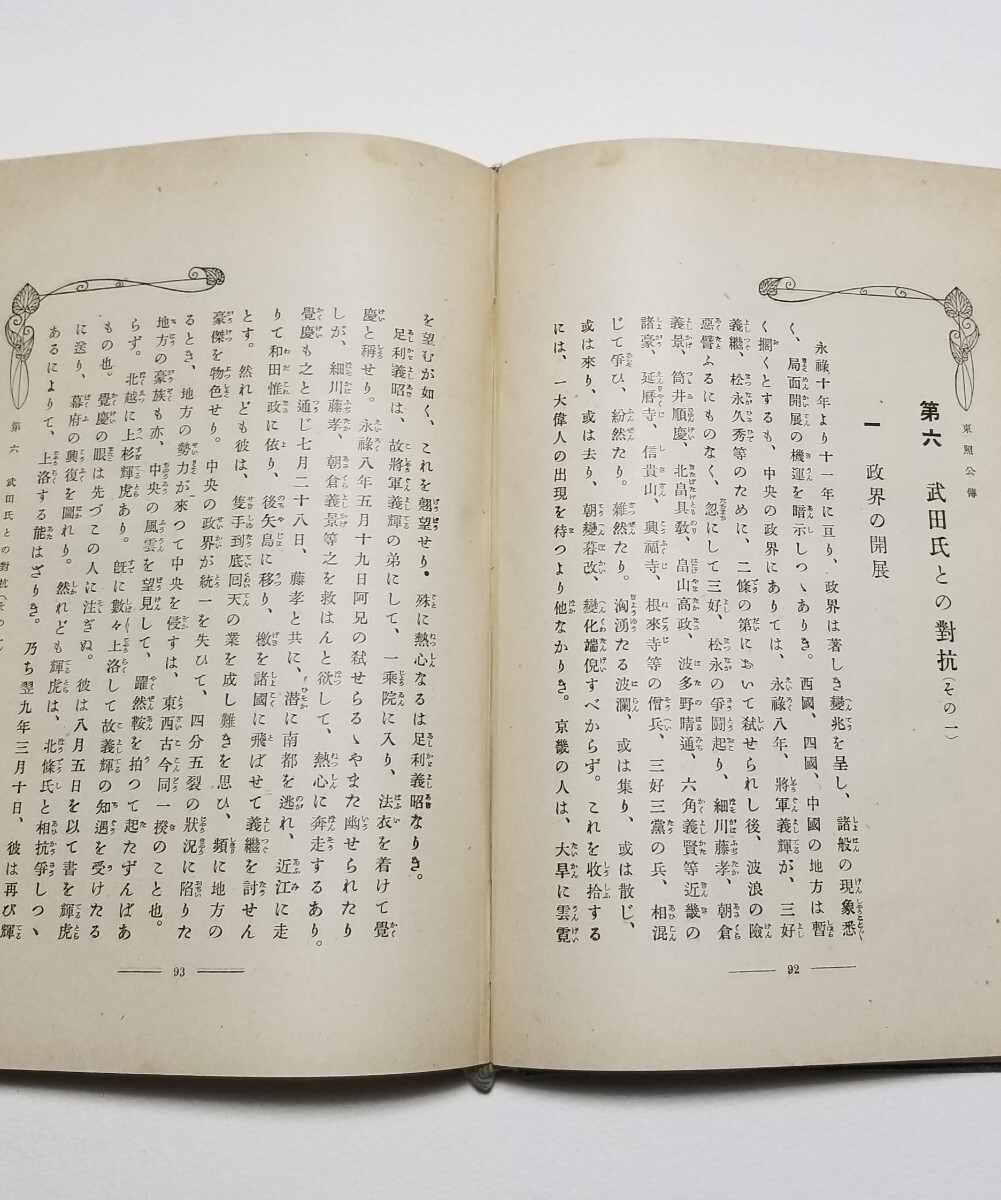 東照公傳
第六　武田氏との對抗（その一）
一　政界の開展
永祿十年より十一年に亘り、政界は著しき變兆を呈し、諸般の現象悉
く、局面開展の機運を暗示しつゝありき。西國、四國、中國の地方は暫
く擱くとするも、中央の政界にありては、永祿八年、將軍義輝が、三好
義繼、松永久秀等のために、二條の第において弑せられし後、波浪の險
惡譬ふるにものなく、忽にして三好、松永の爭鬪起り、細川藤孝、朝倉
義景、筒井順慶、北畠具敎、畠山高政、波多野晴通、六角義賢等近畿の
諸豪、延曆寺、信貴山、興福寺、根來寺等の僧兵、三好三黨の兵、相混
じて爭ひ、紛然たり。雜然たり。洶湧たる波瀾、或は集り、或は散じ、
或は來り、或は去り、朝變暮改、變化端倪すべからず。これを收拾する
には、一大偉人の出現を待つより他なかりき。京畿の人は、大旱に雲霓
92
を望むが如く、これを翹望せり。殊に熱心なるは足利義昭なりき。
足利義昭は、故將軍義輝の弟にして、一乘院に入り、法衣を着けて覺
慶と稱せり。永祿八年五月十九日阿兄の弑せらるゝやまた幽せられたり
しが、細川藤孝、朝倉義景等之を救はんと欲して、熱心に奔走するあり。
覺慶も之と通じ七月二十八日、藤孝と共に、潛に南都を逃れ、近江に走
りて和田惟政に依り、後矢島に移り、檄を諸國に飛ばせて義繼を討せん
とす。然れども彼は、隻手到底回天の業を成し難きを思ひ、頻に地方の
豪傑を物色せり。中央の政界が統一を失ひて、四分五裂の狀況に陷りた
るとき、地方の勢力が來つて中央を侵すは、東西古今同一揆のこと也。
地方の豪族も亦、中央の風雲を望見して、躍然鞍を拍つて起たずんばあ
らず。北越に上杉輝虎あり。旣に數々上洛して故義輝の知遇を受けたる
もの也。覺慶の眼は先づこの人に注ぎぬ。彼は八月五日を以て書を輝虎
に送り、幕府の興復を圖れり。然れども輝虎は、北條氏と相抗爭しつゝ
あるによりて、上洛する能はざりき。乃ち翌九年三月十日、彼は再び輝
第六　武田氏との對抗（その一）
93